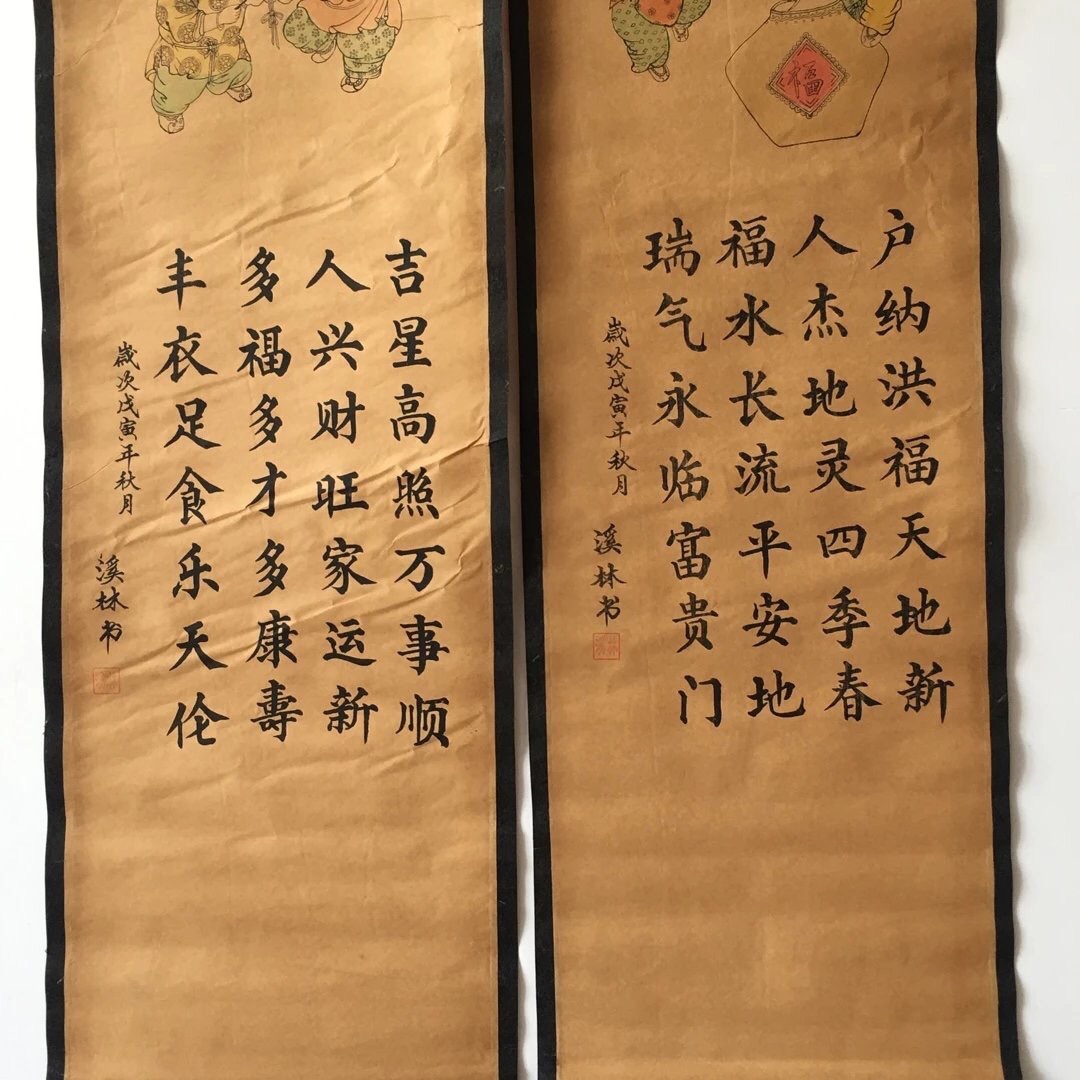 福
户纳洪福天地新
人杰地灵四季春
福水长流平安地
瑞气永临富贵门
歲次戊寅年秋月
溪林书
吉星高照万事顺
人兴财旺家运新
多福多才多康壽
丰衣足食乐天伦
歲次戊寅年秋月
溪林书